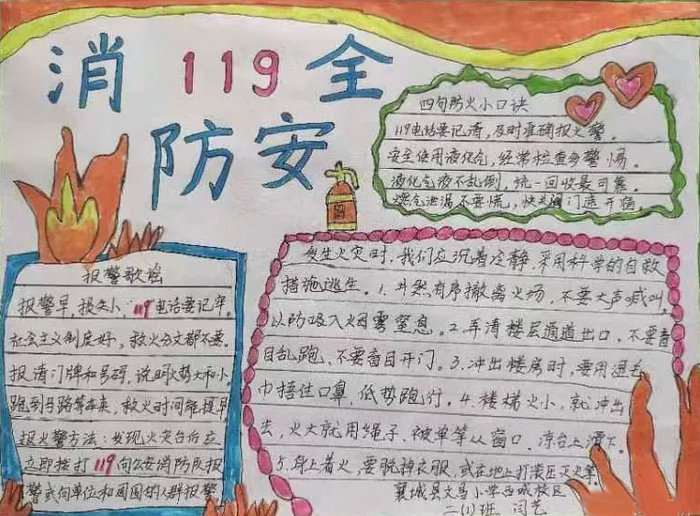 消 119 全
防安
四句防火小口诀
119电话要记清，及时准确报火警。
安全使用液化气，经常检查多警惕。
液化气液不乱倒，统一回收最可靠。
燃气泄漏不要慌，快关阀门速开窗
报警歌谣
报警早，损失小，119电话要记牢。
社会主义制度好，救火分文都不要。
报清门牌和号码，说明火势大和小
跑到马路等车来，救火时间能提早
报火警方法：发现火灾台后立
立即拨打119向公安消防队报
警或向单位和周围的人群报警
发生火灾时，我们应沉着冷静，采用科学的自救
措施逃生。1.井然有序撤离火场，不要大声喊叫，
以防吸入烟雾窒息。2.弄清楼层通道出口，不要盲
目乱跑、不要盲目开门。3.冲出楼房时，要用湿毛
巾捂住口鼻，低势跑行。4.楼梯火小，就冲出
去，火大就用绳子、被单等从窗口、凉台上滑下。
5.身上着火，要脱掉衣服，或在地上打滚压灭火等
襄城县文昌小学西城校区
二(1)班 闫艺